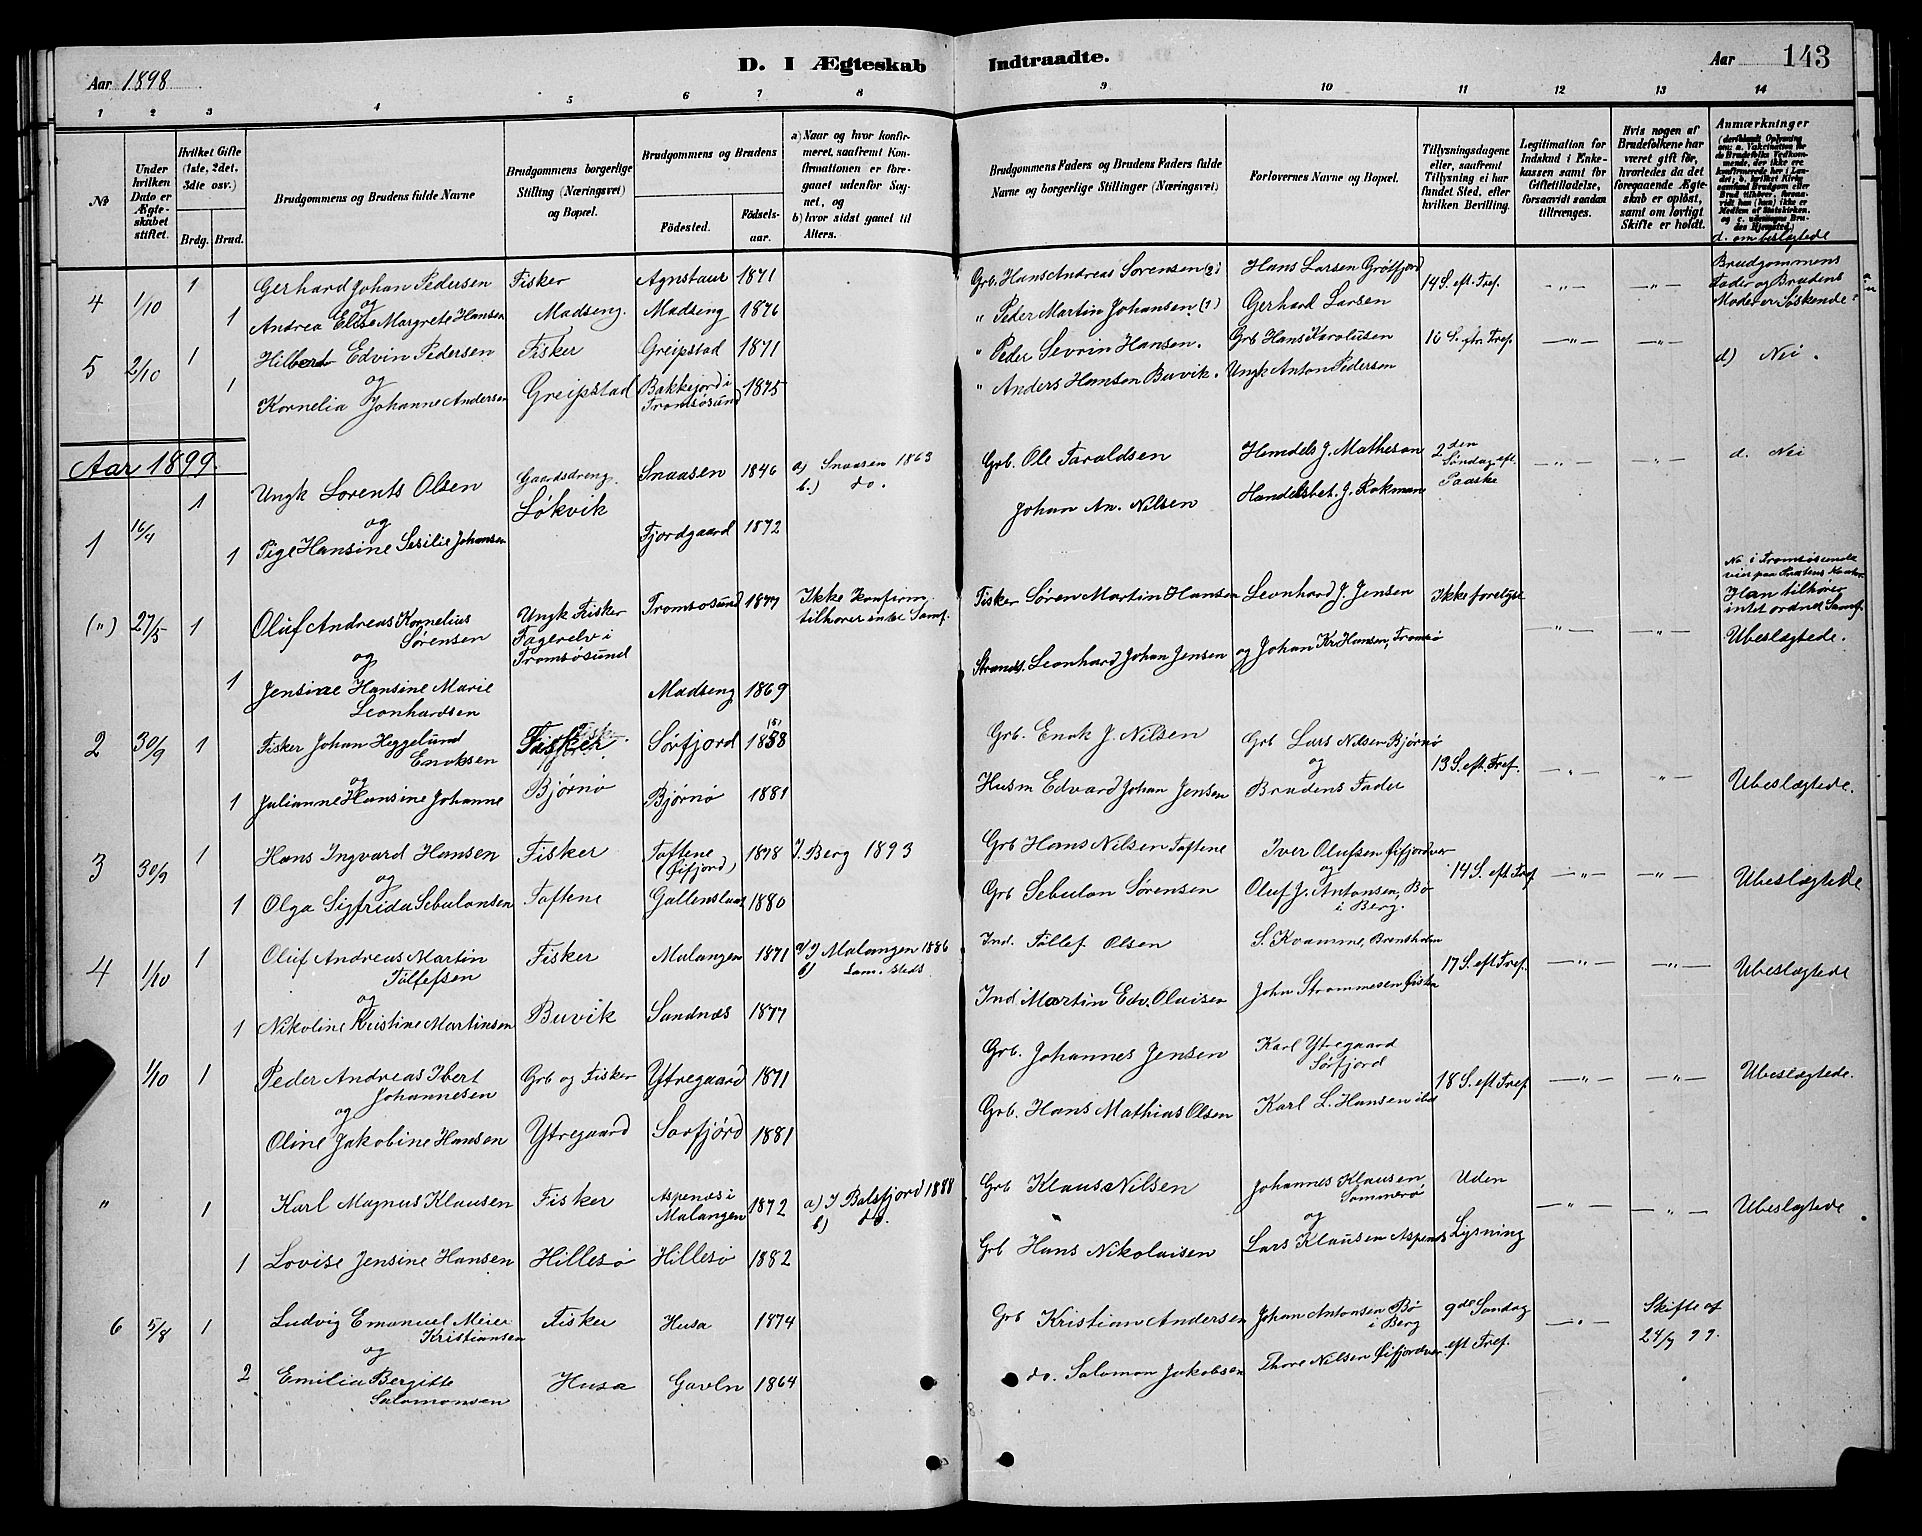 Aar 1898
D. I Ægteskab Indtraadte.
Aar 143
1 2 3 4 5 6 7 8 9 10 11 12 13 14
No
Under hvilken Dato er Ægteskabet stiftet.
Hvilket Gifte (1ste, 2det, 3die osv.)
Brdg. Brud.
Brudgommens og Brudens fulde Navne
Brudgommens borgerlige Stilling (Næringsvei) og Bopæl.
Brudgommens og Brudens
Födested.
Födsels-aar.
a) Naar og hvor konfirmeret, saafremt Konfirmationen er foregaaet udenfor Sognet, og
b) hvor sidst gaaet til Alters.
Brudgommens Faders og Brudens Faders fulde Navne og borgerlige Stillinger (Næringsvei)
Forlovernes Navne og Bopæl.
Tillysningsdagene eller, saafremt Tillysning ei har fundet Sted, efter hvilken Bevilling.
Legitimation for Indskud i Enkekassen samt for Giftetilladelse, forsaavidt saadan tiltrænges.
Hvis nogen af Brudefolkene har været gift för, hvorledes da det foregaaende Ægteskab er oplöst, samt om lovligt Skifte er holdt.
Anmærkninger
d. om beslægtede
4 1/10 1 Gerhard Johan Pedersen Fisker Agnstaur 1871 Grb. Hans Andreas Sørensen (2) Hans Larsen Grøtfjord 14 S. eft. Tref. -"- -"- Brudgommens Fader og Brudens Moder er Søskende
og
1 Andrea Elise Margrete Hansen Madseng. Madseng 1876 " Peder Martin Johansen (1) Gerhard Larsen
5 2/10 1 Hilbert Edvin Pedersen Fisker Greipstad 1871 " Peder Sevrin Hansen. Grb Hans Karolusen 16 S. eftr. Tref. -"- -"- d) Nei.
og
1 Kornelia Johanne Andersen Greipstad Bakkejord i Tromsøsund 1875 " Anders Hansen Buvik. Ungk Anton Pedersen
Aar 1899.
1 16/4 1 Ungk Lorents Olsen Gaardsdreng. Løkvik Snaasen 1846 a) Snaasen 1863 b.) do. Grb. Ole Taraldsen Hemdels J. Mathesen 2den Søndag eft. Paaske -"- -"- d. Nei
og
1 Pige Hansine Sesilie Johansen Fjordgaard 1872 Johan An. Nilsen Handelsbet. J. Rokman
(") 27/5 1 Oluf Andreas Kornelius Sørensen Ungk Fisker Fagerelv i Tromsøsund Tromsøsund 1877 Ikke konfirm. tilhører intet Samf. Fisker Søren Martin Hansen Leonhard J. Jensen Ikke foretget -"- -"- Han tilhører intet ordnet Samf. Ubeslægtede.
og
1 Jensine Hansine Marie Leonhardsen Madseng 1869 Strands. Leonhard Johan Jensen og Johan Kr Hansen, Tromsø
2 30/9 1 Fisker Johan Heggelund Enoksen Fisker Sørfjord 1858 Grb. Enok J. Nilsen Grb Lars Nilsen Bjørnø 13 S. eft. Tref. -"- -"- Ubeslægtede.
og
1 Julianne Hansine Johanne Bjørnø Bjørnø 1881 Husm Edvard Johan Jensen og Brudens Fader
3 30/9 1 Hans Ingvard Hansen Fisker Toftene (Øifjord) 1878 I Berg 1893 Grb Hans Nilsen Toftene Iver Olufsen Øifjordvær 14 S. eft Tref -"- -"- Ubeslægtede
og
1 Olga Sigfrida Sebulonsen Toftene 1880 Grb Sebulon Sørensen og Oluf J. Antonsen, Bø i Berg.
4 1/10 1 Oluf Andreas Martin Tollefsen Fisker Malangen 1871 a/ I Malangen 1886 b) Sam. steds. Ind. Tollef Olsen S. Kvamme, Brentholm 17 S. eft Tref. -"- -"- Ubeslægtede
og
1 Nikoline Kristine Martinsen Buvik Sandnæs 1877 Ind Martin Edv. Oluisen John Strømmesen
1/10 1 Peder Andreas Ibert Johannesen Grb og Fisker Ytregaard 1871 Grb. Johannes Jensen Karl Ytregaard Sørfjord 18 S. eft Tref -"- -"- Ubeslægtede.
og
Oline Jakobine Hansen Ytregaard Sørfjord 1881 Grb. Hans Mathias Olsen Karl L. Hansen ibd
" 1 Karl Magnus Klausen Fisker Aspenæs i Malangen 1872 a) I Balsfjord 1888 b) do. Grb Klaus Nilsen Johannes Klausen, Sommerø Uden -"- -"- Ubeslægtede
1 Lovise Jensine Hansen Hillesø Hillesø 1882 Grb Hans Nikolaisen og Lars Klausen Aspenæs Lysning
6 5/8 1 Ludvig Emanuel Meier Kristiansen Fisker Husa 1874 Grb Kristian Andersen Johan Antonsen Bø i Berg 9de Søndag -"- Skifte af 24/7 99.
og
2 Emilia Bergitte Salomonsen Husa 1864 do. Salomon Jakobsen Thore Nilsen Øifjordvær eft Tref.